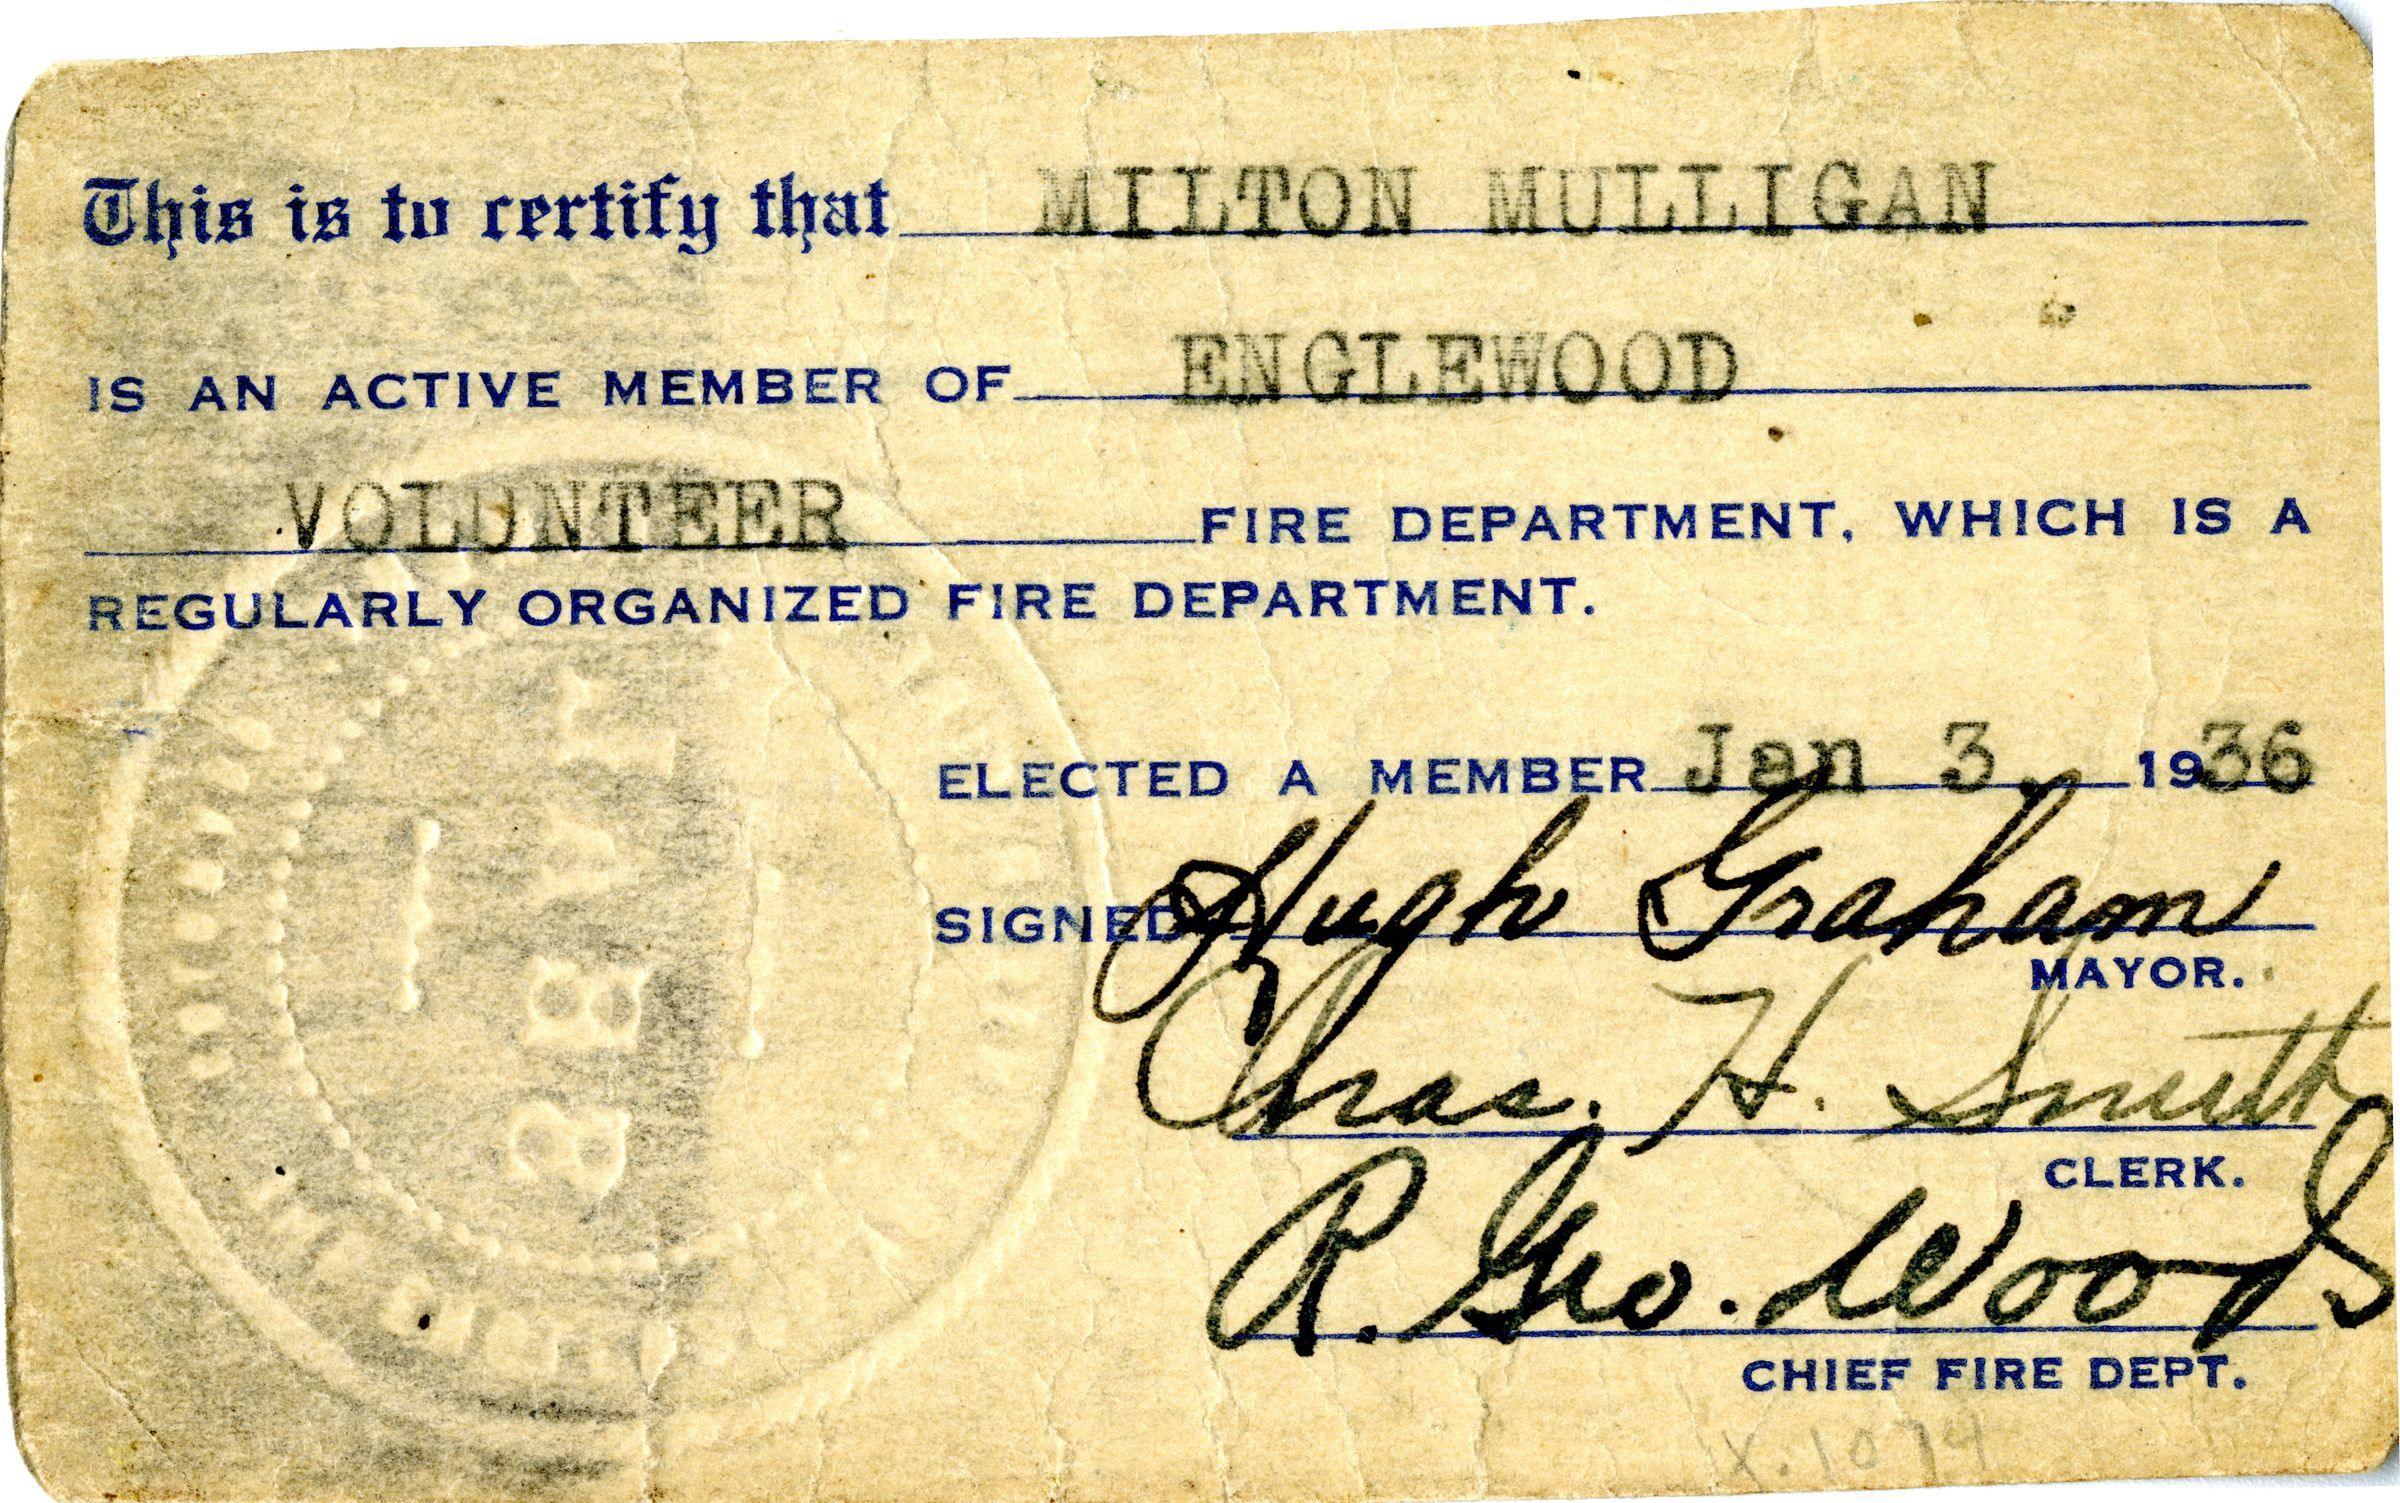 This is to certify that MILTON MULLIGAN
IS AN ACTIVE MEMBER OF ENGLEWOOD
VOLUNTEER FIRE DEPARTMENT, WHICH IS A
REGULARLY ORGANIZED FIRE DEPARTMENT.
ELECTED A MEMBER Jan 3, 1936
SIGNED Hugh Graham
MAYOR.
Chas. H. Smith
CLERK.
R. Geo. Woods
CHIEF FIRE DEPT.
X.1074
SEAL